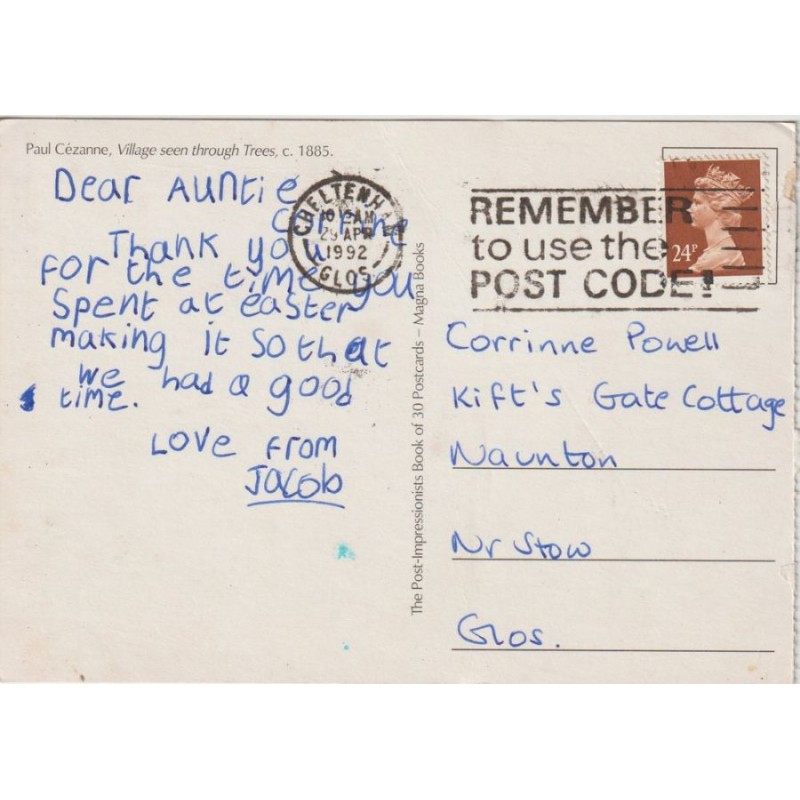 Paul Cézanne, Village seen through Trees, c. 1885.
Dear Auntie
Corrine
Thank you
for the time you
Spent at easter
making it so that
we had a good
time.
Love from
Jacob
CHELTENHAM
29 APR
1992
GLOS
REMEMBER
to use the
POST CODE!
24P
The Post-Impressionists Book of 30 Postcards – Magna Books
Corrinne Powell
Kift's Gate Cottage
Naunton
Nr Stow
Glos.